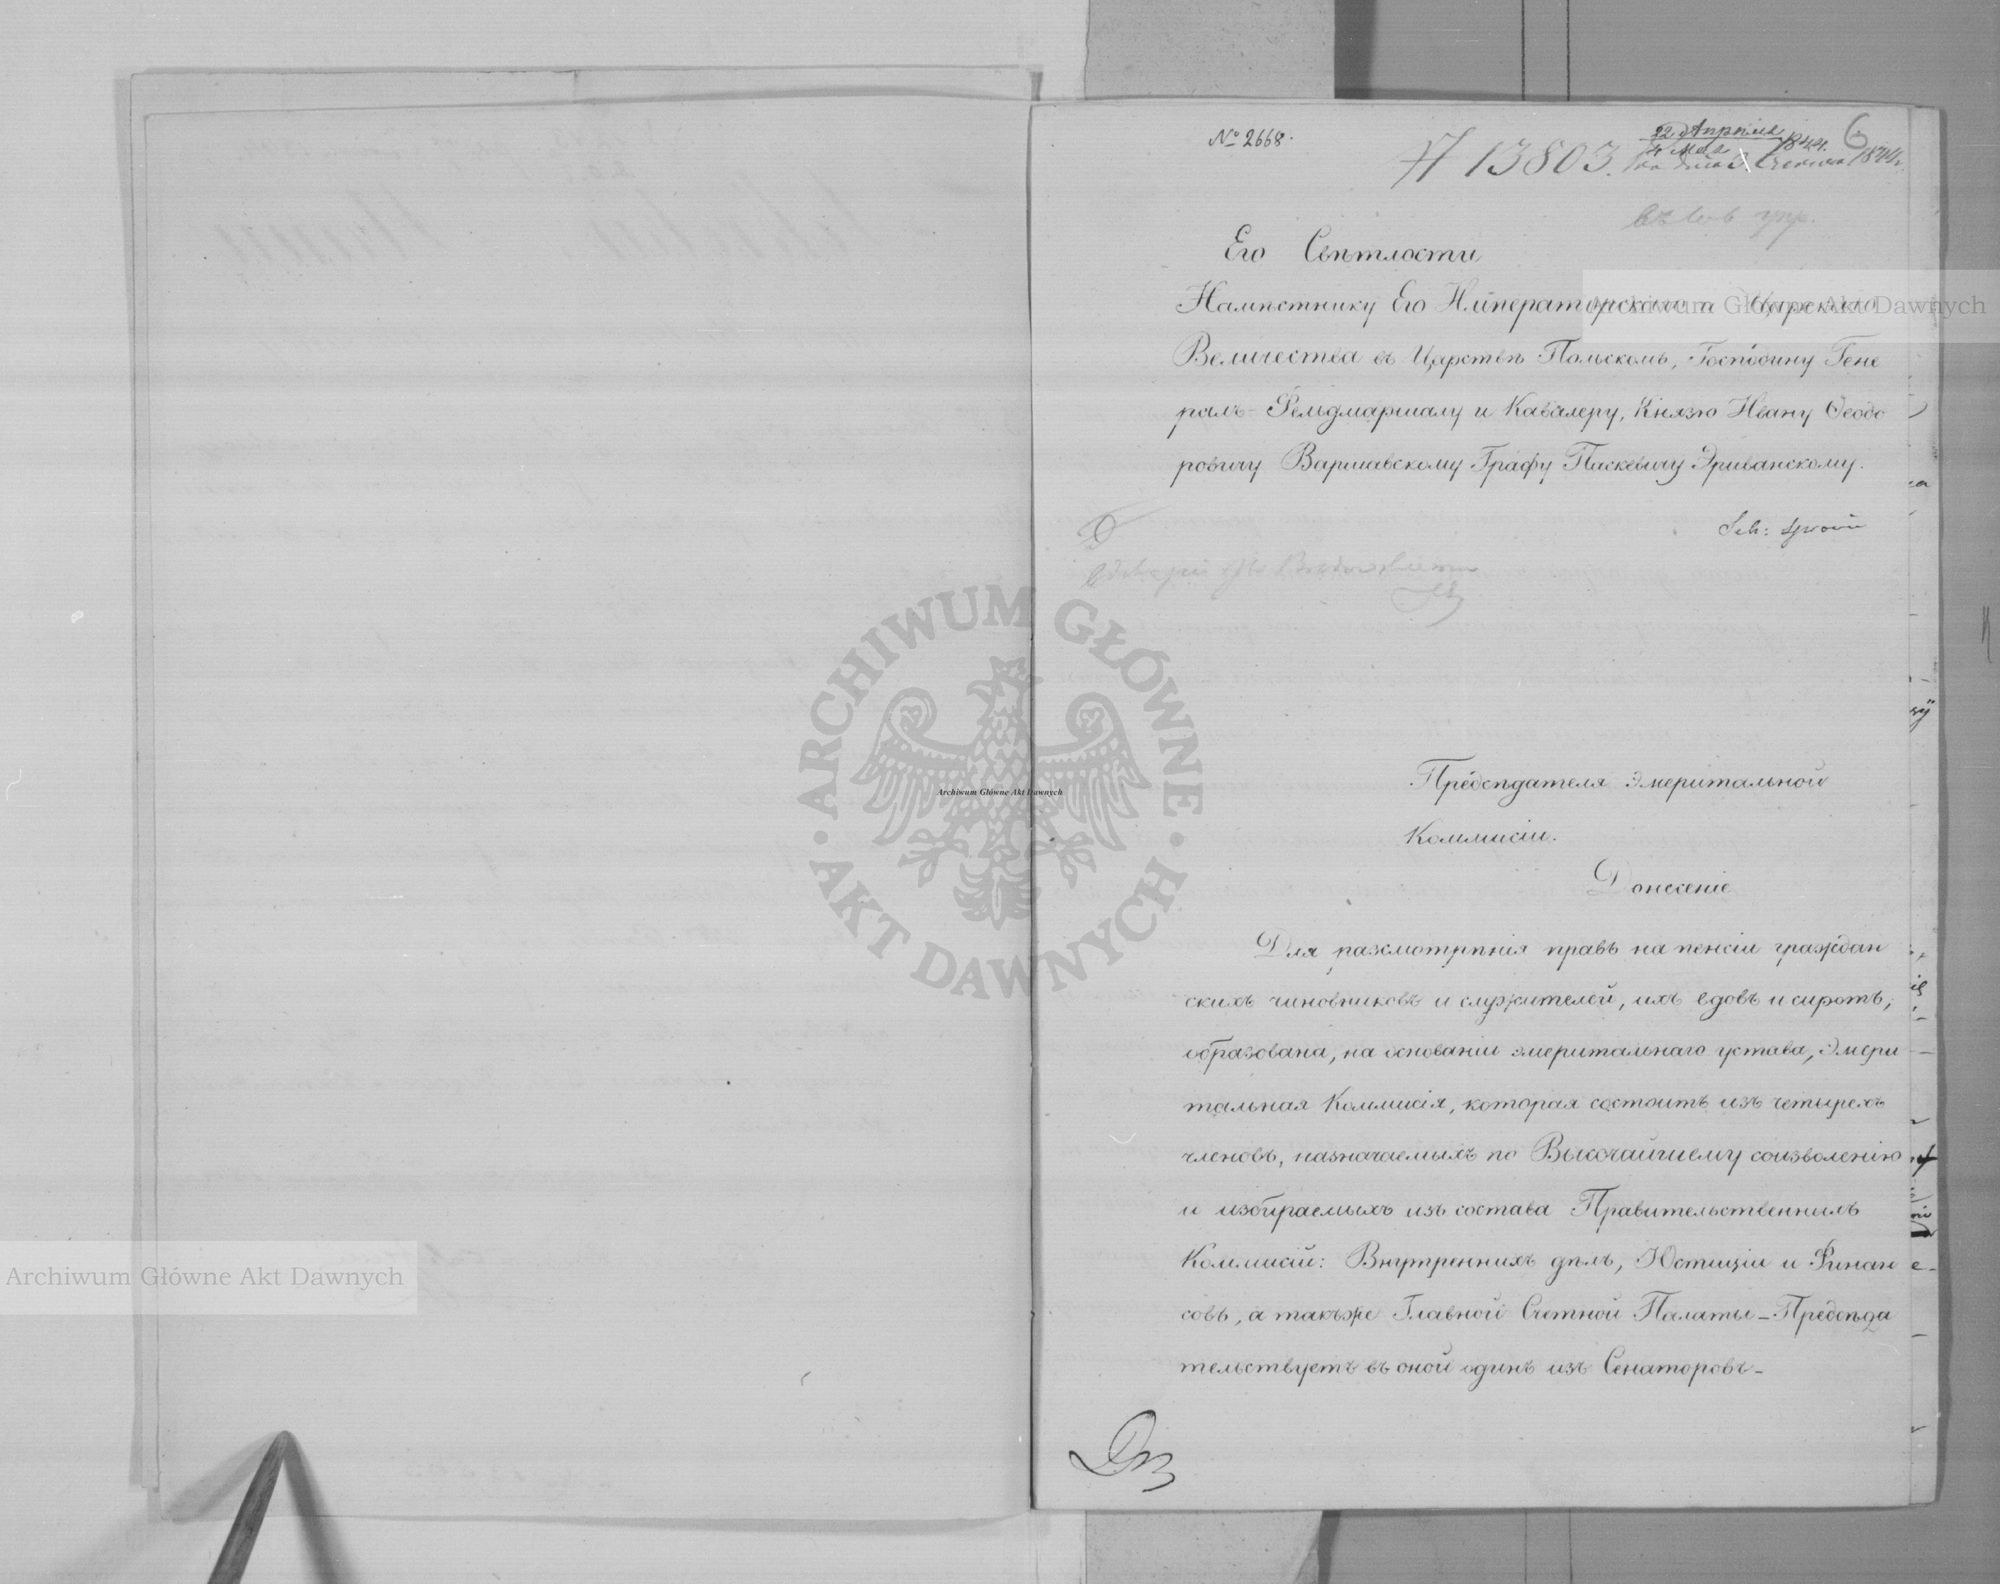 № 2668.
13803.
22 Апрѣля
4 Мая 1844.
6
Его Свѣтлости
Намѣстнику Его Императорскаго и Царскаго
Величества въ Царствѣ Польскомъ, Господину Гене
ралъ-Фельдмаршалу и Кавалеру, Князю Ивану Ѳеодо
ровичу Варшавскому Графу Паскевичу Эриванскому.
Предсѣдателя Эмеритальной
Коммисіи.
Донесеніе
Для разсмотрѣнія правъ на пенсіи граждан
скихъ чиновниковъ и служителей, ихъ вдовъ и сиротъ,
образована, на основаніи эмеритальнаго устава, Эмери
тальная Коммисія, которая состоитъ изъ четырехъ
членовъ, назначаемыхъ по Высочайшему соизволенію
и избираемыхъ изъ состава Правительственныхъ
Коммисій: Внутреннихъ дѣлъ, Юстиціи и Финан
совъ, а также Главной Счетной Палаты – Предсѣда
тельствуетъ въ оной одинъ изъ Сенаторовъ –
Archiwum Główne Akt Dawnych
Archiwum Główne Akt Dawnych
Archiwum Główne Akt Dawnych
ARCHIWUM GŁÓWNE
AKT DAWNYCH